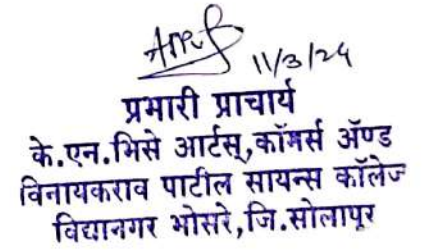 11/3/24
प्रभारी प्राचार्य
के.एन.भिसे आर्टस्,कॉमर्स ॲण्ड
विनायकराव पाटील सायन्स कॉलेज
विद्यानगर भोसरे,जि.सोलापूर